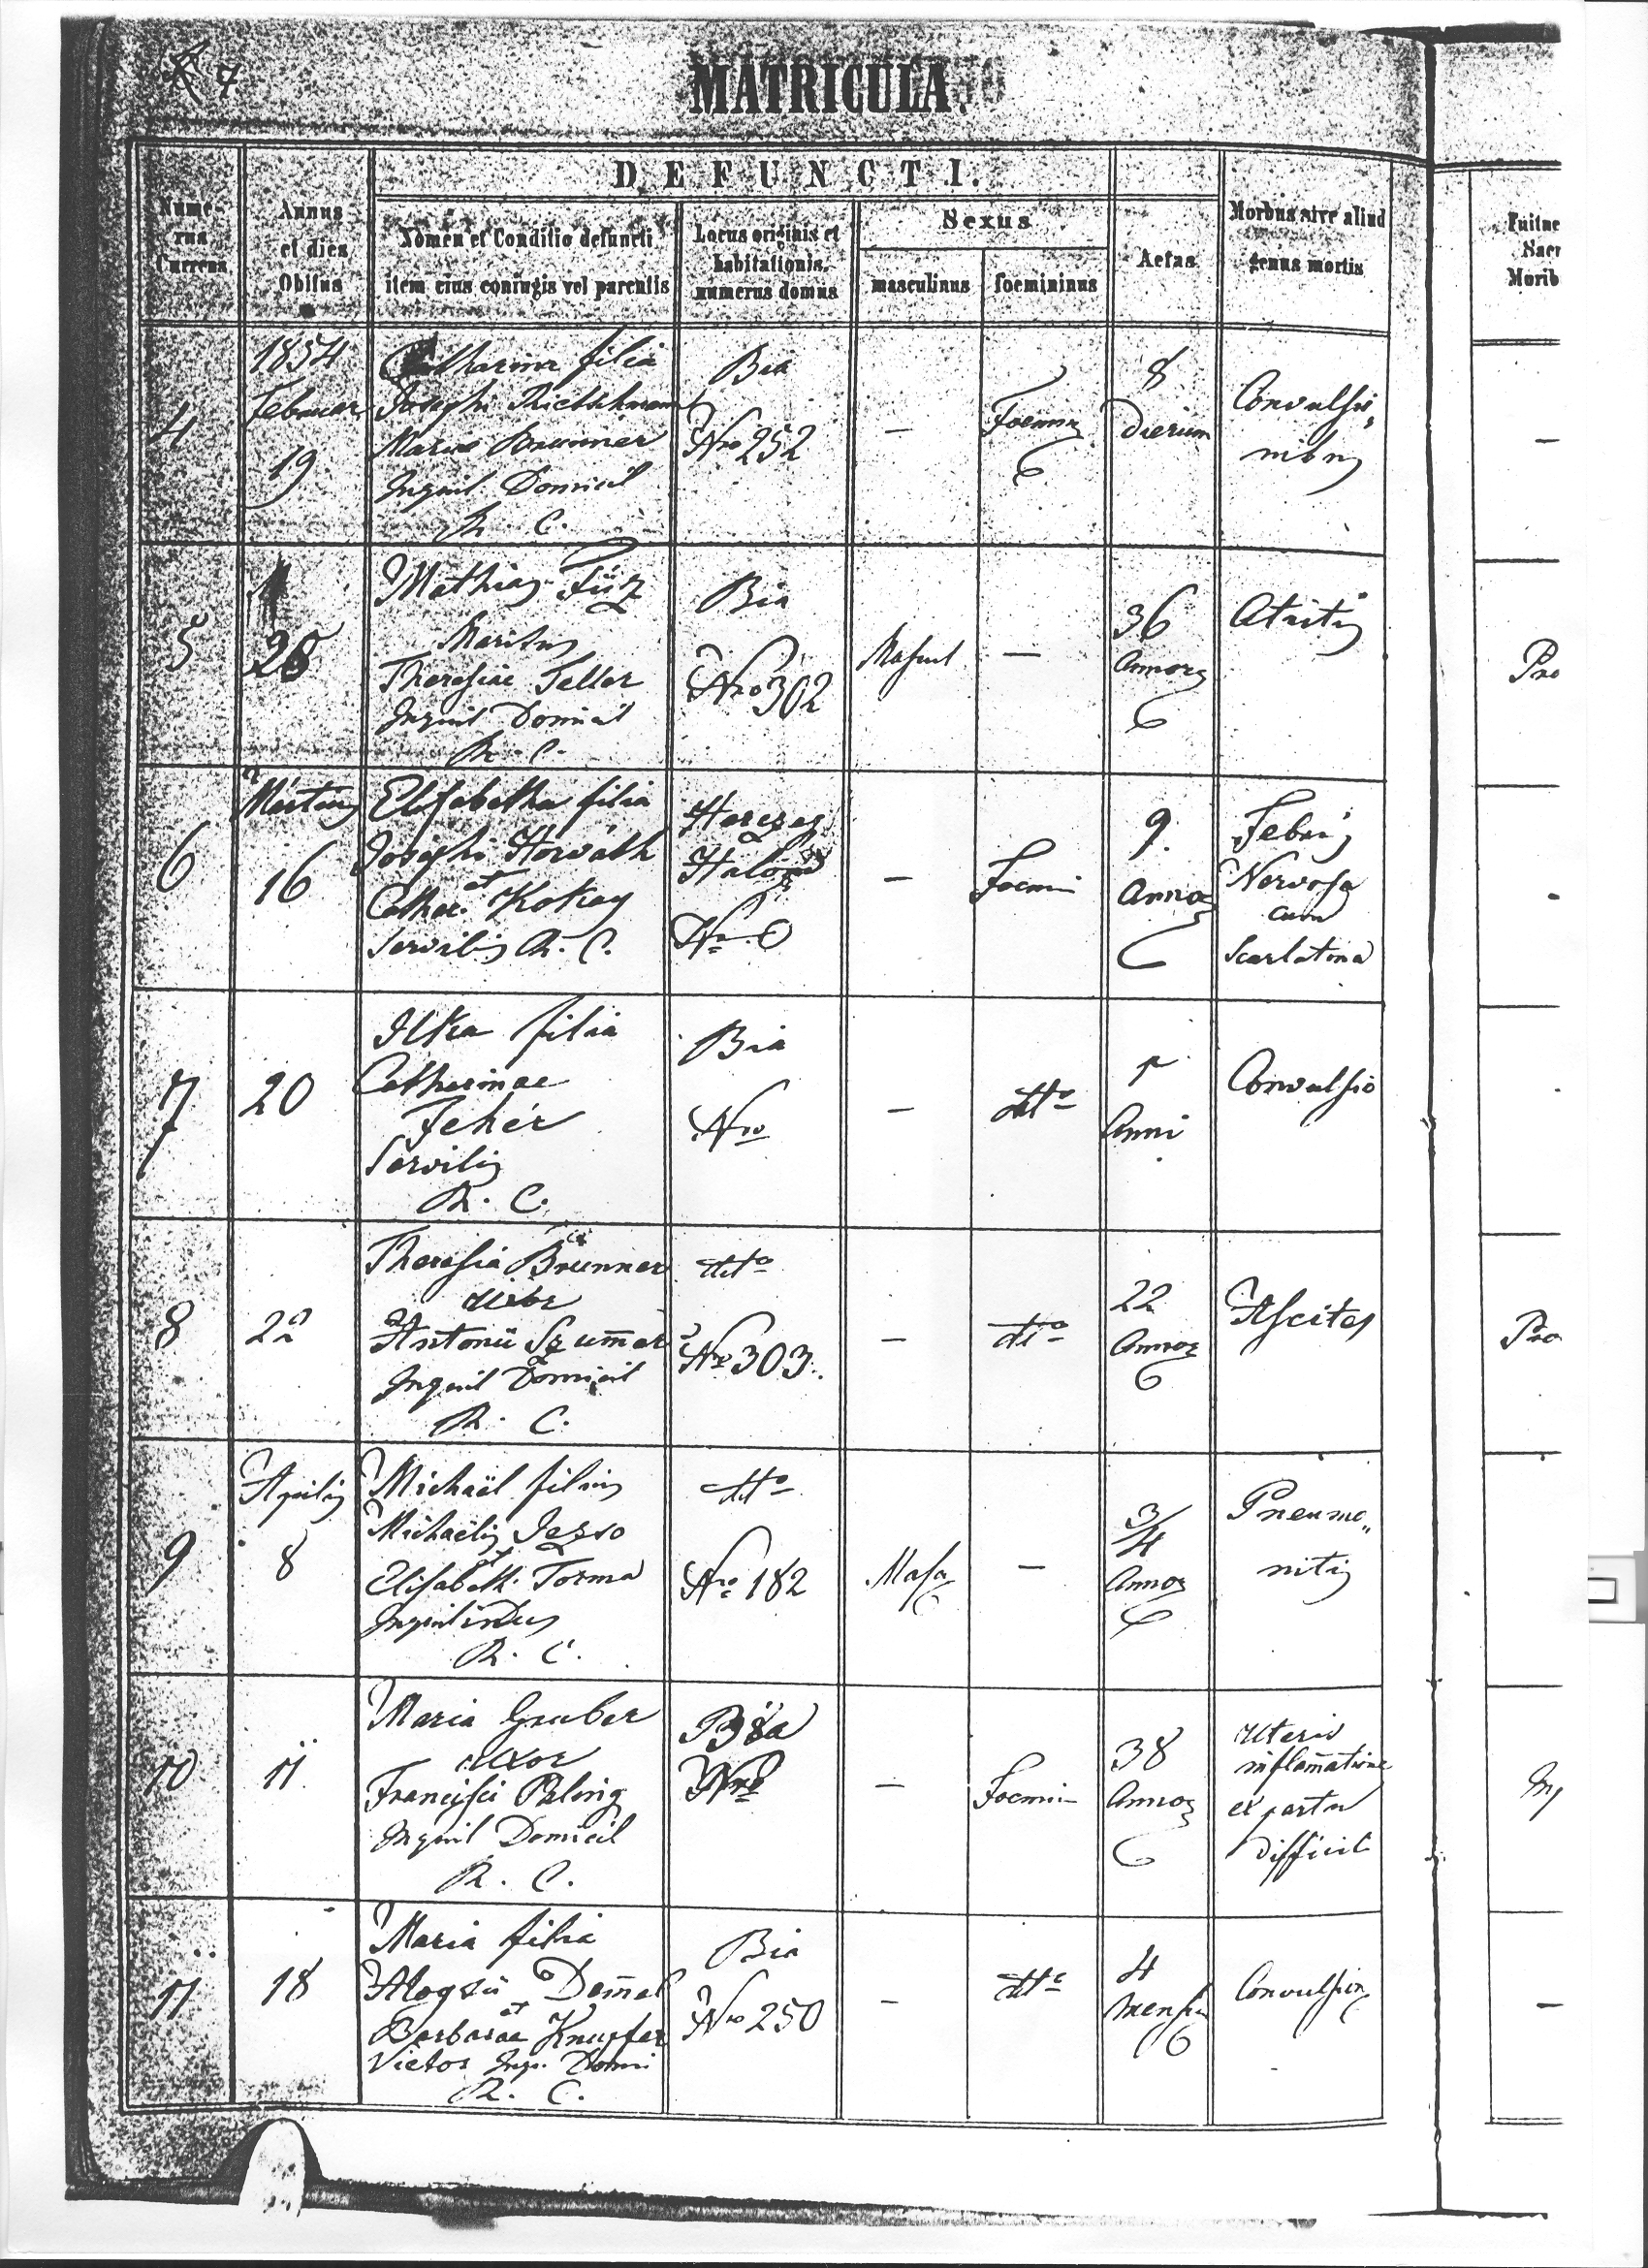 7
MATRICULA
DEFUNCTI.
Nume-
rus
Currens
Annus
et dies
Obitus
Nomen et Conditio defuncti
item eius coniugis vel parentis
Locus originis et
habitationis,
numerus domus
Sexus
masculinus
foemininus
Aetas
Morbus sive aliud
genus mortis
4
1854
Februar
19
Catharina filia
Josephi
Maria Brunner
Inquil Domicil
R. C.
Bia
Nro 252
—
Foemin
8
Dierum
Convulsi„
nibus
—
5
28
Mathias Füz
Maritus
Theresiae Feller
Inquil Domicil
R. C.
Bia
Nro 302
Mascul
—
36
Annor
Pro
6
Martius
16
Elisabetha filia
Josephi Horváth
et
Cathar. Kokay
Servilis R. C.
Herczeg
Halom
Nr. 0
—
Foemi
9.
Annor
Febris
Nervosa
cum
Scarlatina
-
7
20
Ilka filia
Catharinae
Fehér
Servilis
R. C.
Bia
Nro
—
dtto
1
Anni
Convulsio
8
22
Theresia Brunner
uxor
Antonii Szum̄er
Inquil Domicil
R. C.
dtto
Nro 303.
—
dto
22
Annor
Ascites
Pro
9
Aprilis
8
Michaël filius
Michaëlis Jezso
et
Elisabeth. Torma
Inquilinus
R. C.
dtto
Nro 182
Masc
—
3/4
Annor
Pneumo„
nitis
10
11
Maria Gruber
uxor
Francisci Paling
Inquil Domicil
R. C.
Bia
Nro
—
Foemin
38
Annor
Uteris
inflam̄atione
ex partu
difficil
11
18
Maria filia
Aloysii Dom̄el
et
Barbarae Knupfer
Vietor Inq. Domi
R. C.
Bia
Nro 250
—
dtto
4
Mensi
Convulsion
—